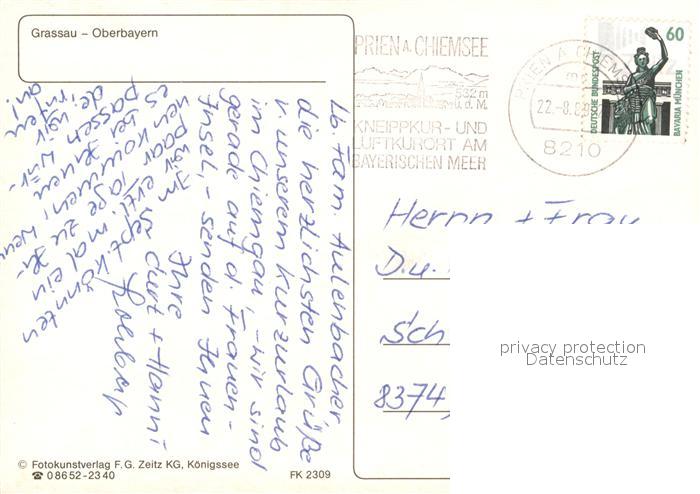 Grassau – Oberbayern
Lb Fam. Aulenbacher
die herzlichsten Grüße
v. unserem Kurzurlaub
im Chiemgau, – wir sind
gerade auf d. Frauen-
Insel, – senden Ihnen
Ihre
Curt + Hanni
Im Sept. könnten
wir evtl. mal ein
paar Tage zu Ih-
nen kommen, wenn
es bei Ihnen
passen wür-
de. Wir
rufen
an!
© Fotokunstverlag F. G. Zeitz KG, Königssee
☎ 0 86 52 - 23 40
FK 2309
PRIEN A. CHIEMSEE
532 m
ü. d. M.
KNEIPPKUR- UND
LUFTKURORT AM
BAYERISCHEN MEER
PRIEN A CHIEMS
22.-8.
8210
60
DEUTSCHE BUNDESPOST
BAVARIA MÜNCHEN
Herrn + Frau
D. u.
Sch
8374,
privacy protection
Datenschutz